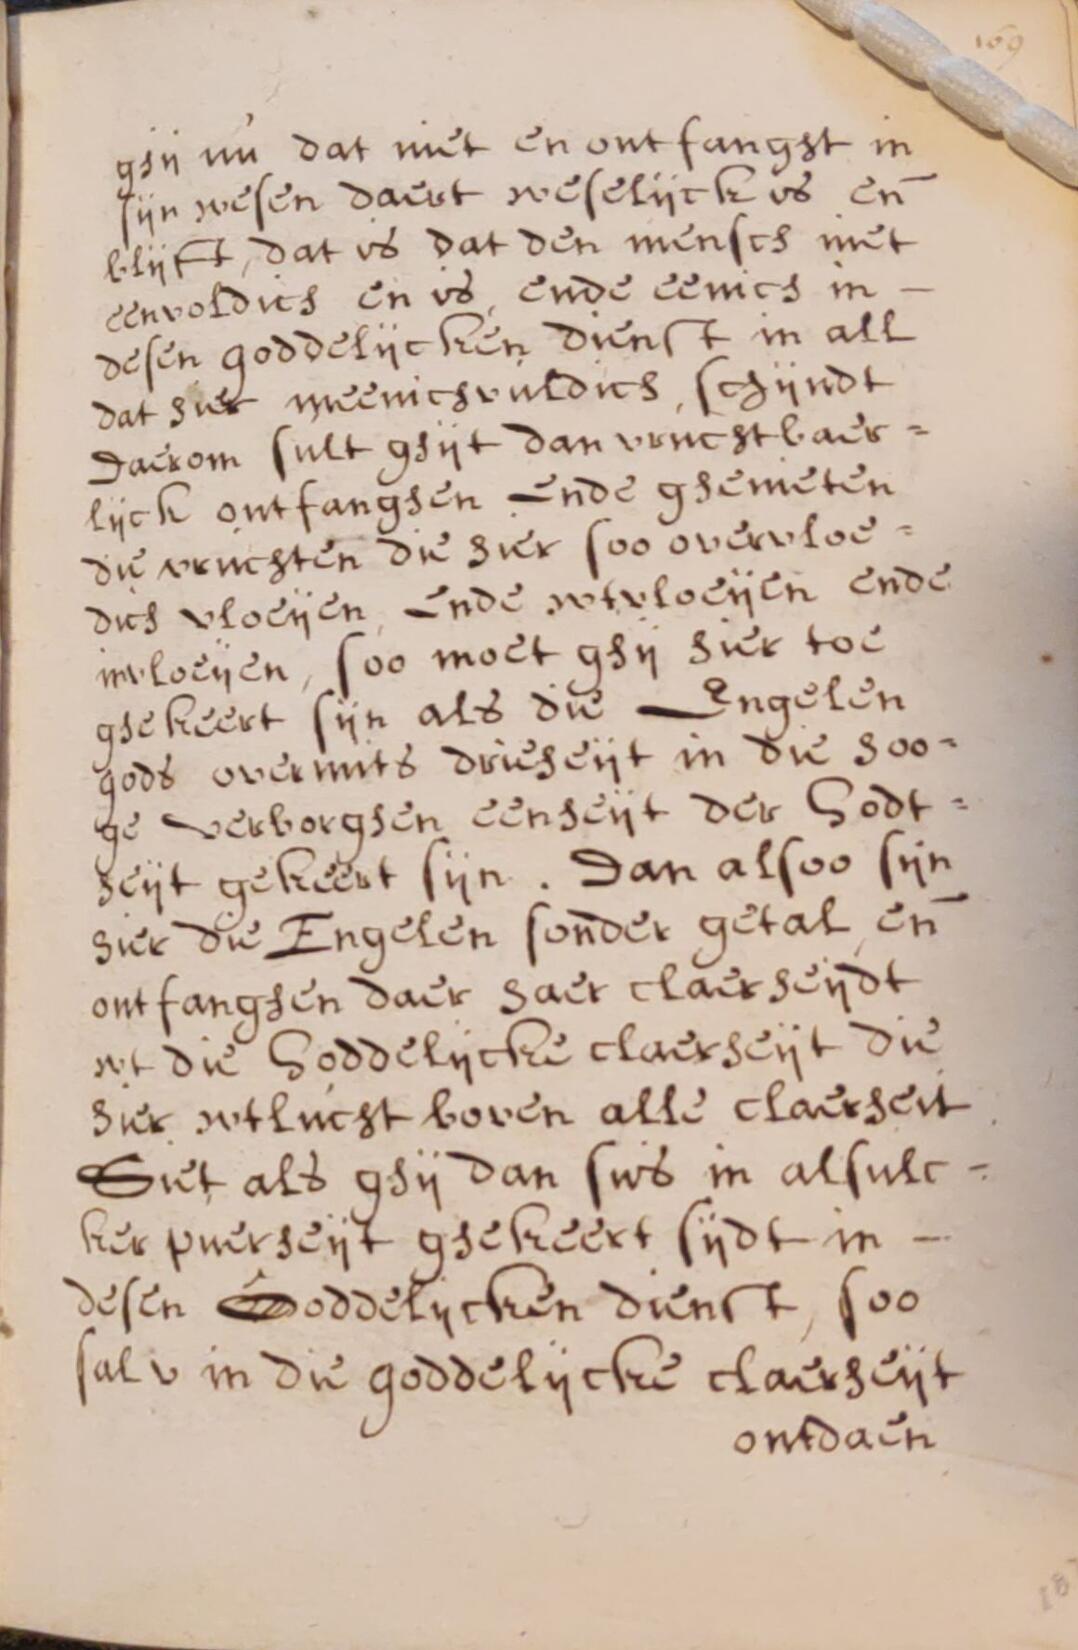 169
ghij nu dat niet en ontfanght in
sijn wesen daert weselijck is en̄
blijft, dat is dat den mensch niet
eenvoldich en is, ende eenich in –
desen goddelijcken dienst in all
dat hier meenichvuldich, schijndt
Daerom sult ghijt dan vruchtbaer=
lijck ontfanghen Ende ghenieten
die vruchten die hier soo overvloe=
dich vloeijen, Ende wtvloeijen ende
invloeijen, soo moet ghij hier toe
ghekeert sijn als die Engelen
gods overmits drieheijt in die hoo=
ge verborghen eenheijt der Godt=
heijt gekeert sijn. Dan alsoo sijn
hier die Engelen sonder getal en̄
ontfanghen daer haer claerheijdt
wt die Goddelijcke claerheijt die
hier wtlucht boven alle claerheit
Siet als ghij dan sus in alsulc=
ker puerheijt ghekeert sijdt in –
desen Goddelijcken dienst, soo
sal v in die goddelijcke claerheijt
ontdaen